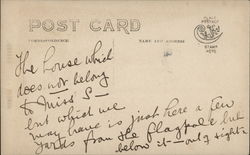 POST CARD
CORRESPONDENCE
NAME AND ADDRESS
PLACE
POSTAGE
STAMP
HERE
The house which
does not belong
to Miss S—
but which we
may have is just here a few
yards from the Flagpole & but
below it—out of sight.